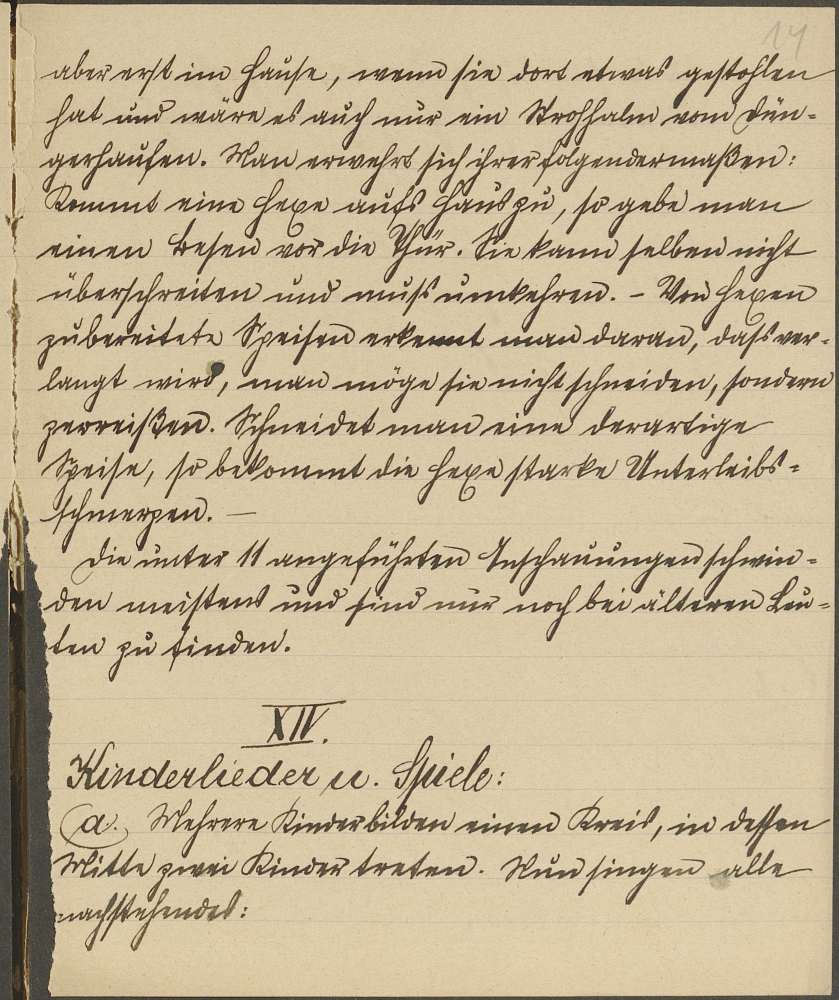 14
aber erst im Hause, wenn sie dort etwas gestohlen
hat und wäre es auch nur ein Strohhalm vom Dün-
gerhaufen. Man erwehrt sich ihrer folgendermaßen:
Kommt eine Hexe aufs Haus zu, so gebe man
einen Besen vor die Thür. Sie kann selben nicht
überschreiten und muß umkehren. – Von Hexen
zubereitete Speisen erkennt man daran, daß ver-
langt wird, man möge sie nicht schneiden, sondern
zerreißen. Schneidet man eine derartige
Speise, so bekommt die Hexe starke Unterleibs-
schmerzen. —
Die unter 11 angeführten Anschauungen schwin-
den meistens und sind nur noch bei älteren Leu-
ten zu finden.
XIV.
Kinderlieder u. Spiele:
a. Mehrere Kinder bilden einen Kreis, in dessen
Mitte zwei Kinder treten. Nun singen alle
nachstehendes: